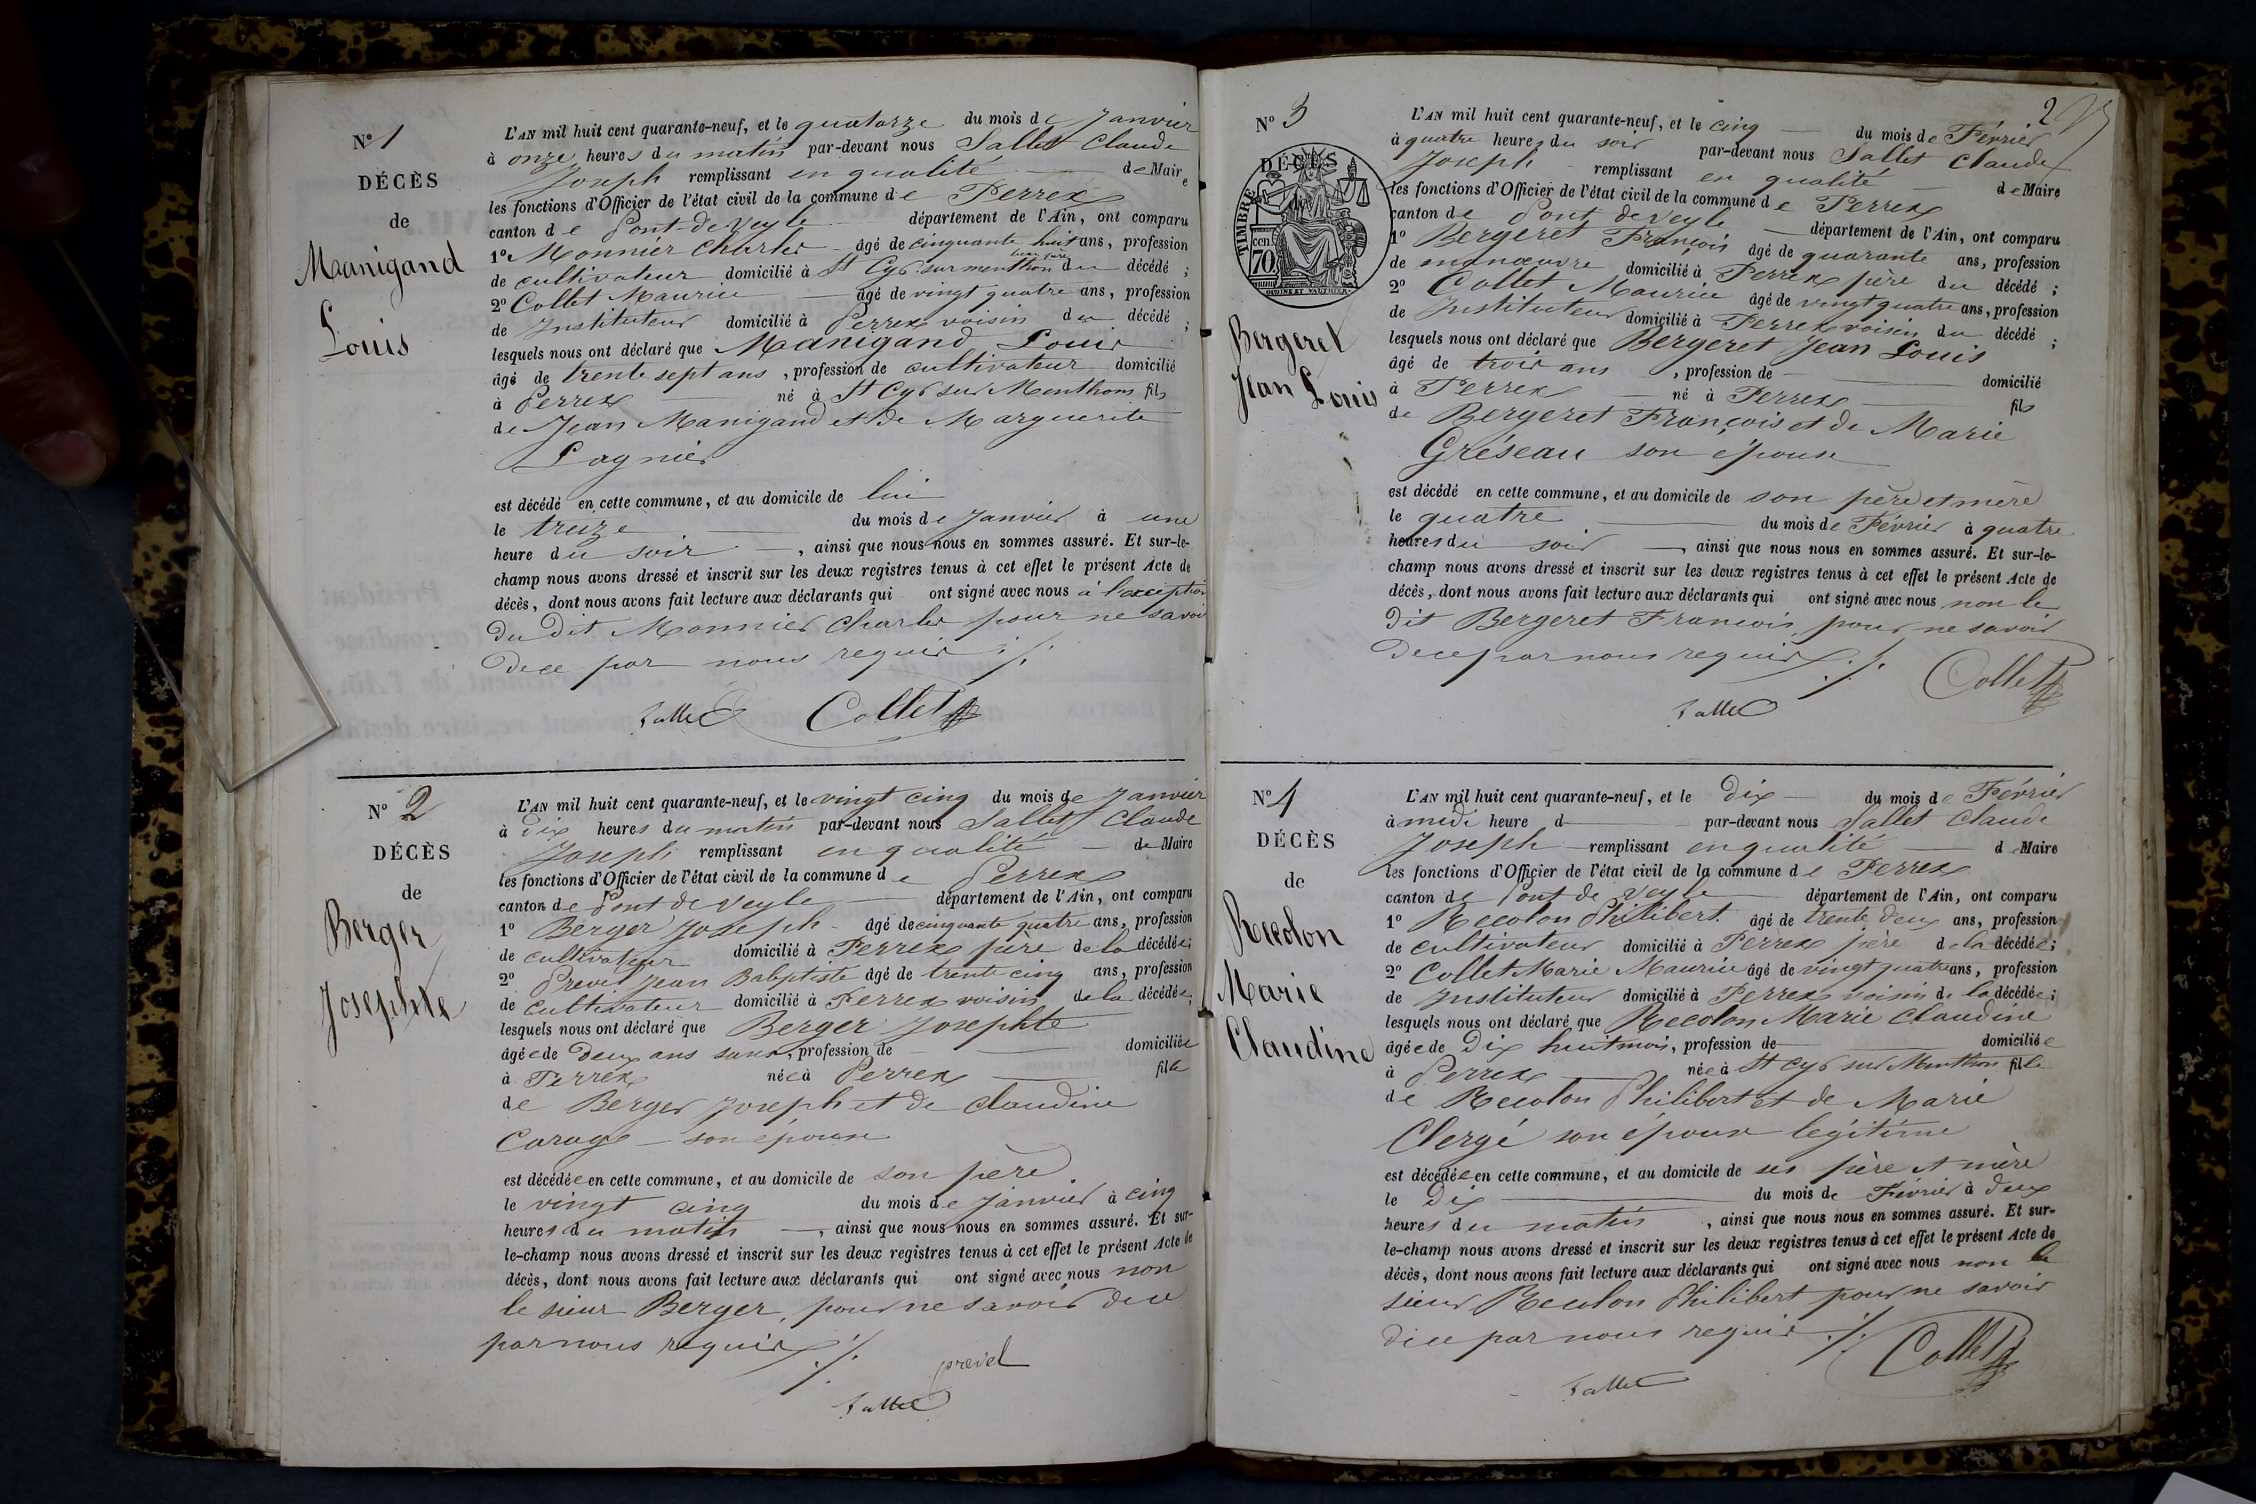 N° 1
DÉCÈS
de
Manigand
Louis
L'AN mil huit cent quarante-neuf, et le quatorze du mois de Janvier
à onze heures du matin par-devant nous Sallet Claude
Joseph remplissant en qualité de Maire
les fonctions d'Officier de l'état civil de la commune de Perrex
canton de Pont-de-Veyle département de l'Ain, ont comparu
1° Monnier Charles âgé de cinquante huit ans, profession
de cultivateur domicilié à St Cyr sur menthon beau frère du décédé ;
2° Collet Maurice âgé de vingt quatre ans, profession
de Instituteur domicilié à Perrex voisin du décédé ;
lesquels nous ont déclaré que Manigand Louis
âgé de trente sept ans, profession de cultivateur domicilié
à Perrex né à St Cyr sur Menthon fils
de Jean Manigand et de Marguerite
Lagnier
est décédé en cette commune, et au domicile de lui
le treize du mois de Janvier à une
heure du soir, ainsi que nous nous en sommes assuré. Et sur-le-
champ nous avons dressé et inscrit sur les deux registres tenus à cet effet le présent Acte de
décès, dont nous avons fait lecture aux déclarants qui ont signé avec nous à l'exception
du dit Monnier Charles pour ne savoir
de ce par nous requis ./.
Sallet Collet
N° 2
DÉCÈS
de
Berger
Josephte
L'AN mil huit cent quarante-neuf, et le vingt cinq du mois de Janvier
à dix heures du matin par-devant nous Sallet Claude
Joseph remplissant en qualité de Maire
les fonctions d'Officier de l'état civil de la commune de Perrex
canton de Pont de Veyle département de l'Ain, ont comparu
1° Berger Joseph âgé de cinquante quatre ans, profession
de cultivateur domicilié à Perrex père de la décédée ;
2° Prevel Jean Babptiste âgé de trente cinq ans, profession
de cultivateur domicilié à Perrex voisin de la décédée ;
lesquels nous ont déclaré que Berger Josephte
âgée de deux ans sans, profession de domiciliée
à Perrex née à Perrex fille
de Berger Joseph et de Claudine
Carage son épouse
est décédée en cette commune, et au domicile de son père
le vingt cinq du mois de Janvier à cinq
heures du matin, ainsi que nous nous en sommes assuré. Et sur-
le-champ nous avons dressé et inscrit sur les deux registres tenus à cet effet le présent Acte de
décès, dont nous avons fait lecture aux déclarants qui ont signé avec nous non
le sieur Berger, pour ne savoir de ce
par nous requis ./.
prevel
Sallet
2
N° 3
DÉCÈS
TIMBRE
cen
70
Bergeret
Jean Louis
L'AN mil huit cent quarante-neuf, et le cinq du mois de Février
à quatre heures du soir par-devant nous Sallet Claude
Joseph remplissant en qualité de Maire
les fonctions d'Officier de l'état civil de la commune de Perrex
canton de Pont de Veyle département de l'Ain, ont comparu
1° Bergeret François âgé de quarante ans, profession
de manœuvre domicilié à Perrex père du décédé ;
2° Collet Maurice âgé de vingt quatre ans, profession
de Instituteur domicilié à Perrex voisin du décédé ;
lesquels nous ont déclaré que Bergeret Jean Louis
âgé de trois ans, profession de domicilié
à Perrex né à Perrex fils
de Bergeret François et de Marie
Gréseau son épouse
est décédé en cette commune, et au domicile de son père et mère
le quatre du mois de Février à quatre
heures du soir, ainsi que nous nous en sommes assuré. Et sur-le-
champ nous avons dressé et inscrit sur les deux registres tenus à cet effet le présent Acte de
décès, dont nous avons fait lecture aux déclarants qui ont signé avec nous non le
dit Bergeret François pour ne savoir
de ce par nous requis ./. Collet
Sallet
N° 4
DÉCÈS
de
Recolon
Marie
Claudine
L'AN mil huit cent quarante-neuf, et le dix du mois de Février
à midi heure d par-devant nous Sallet Claude
Joseph remplissant en qualité de Maire
les fonctions d'Officier de l'état civil de la commune de Perrex
canton de Pont de Veyle département de l'Ain, ont comparu
1° Recolon Philibert âgé de trente deux ans, profession
de cultivateur domicilié à Perrex père de la décédée ;
2° Collet Marie Maurice âgé de vingt quatre ans, profession
de Instituteur domicilié à Perrex voisin de la décédée ;
lesquels nous ont déclaré que Recolon Marie Claudine
âgée de dix huit mois, profession de domiciliée
à Perrex née à St Cyr sur Menthon fille
de Recolon Philibert et de Marie
Clergé son épouse legitime
est décédée en cette commune, et au domicile de ses père et mère
le dix du mois de Février à deux
heures du matin, ainsi que nous nous en sommes assuré. Et sur-
le-champ nous avons dressé et inscrit sur les deux registres tenus à cet effet le présent Acte de
décès, dont nous avons fait lecture aux déclarants qui ont signé avec nous non le
sieur Recolon Philibert pour ne savoir
de ce par nous requis ./. Collet
Sallet